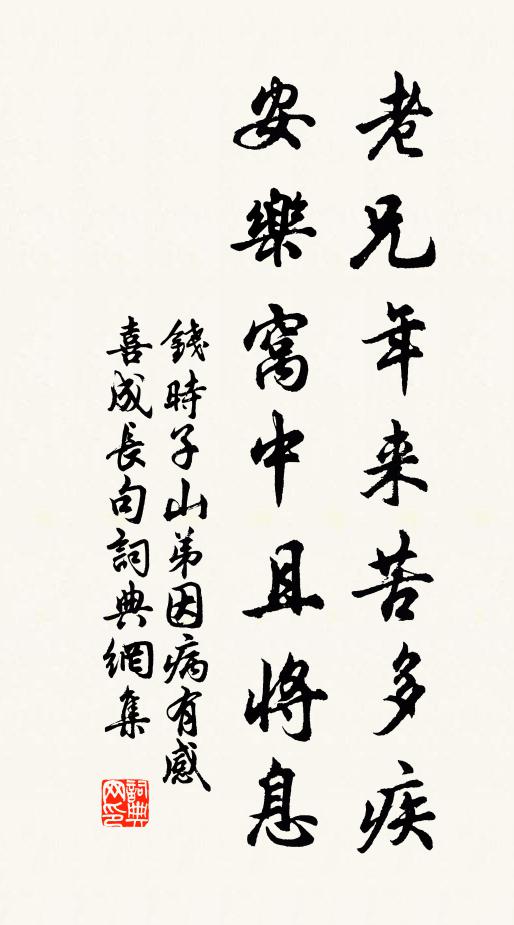 老兄年来苦多疾
安樂窩中且將息
錢時子山弟因病有感
喜成長句詞典網集
詞典網印